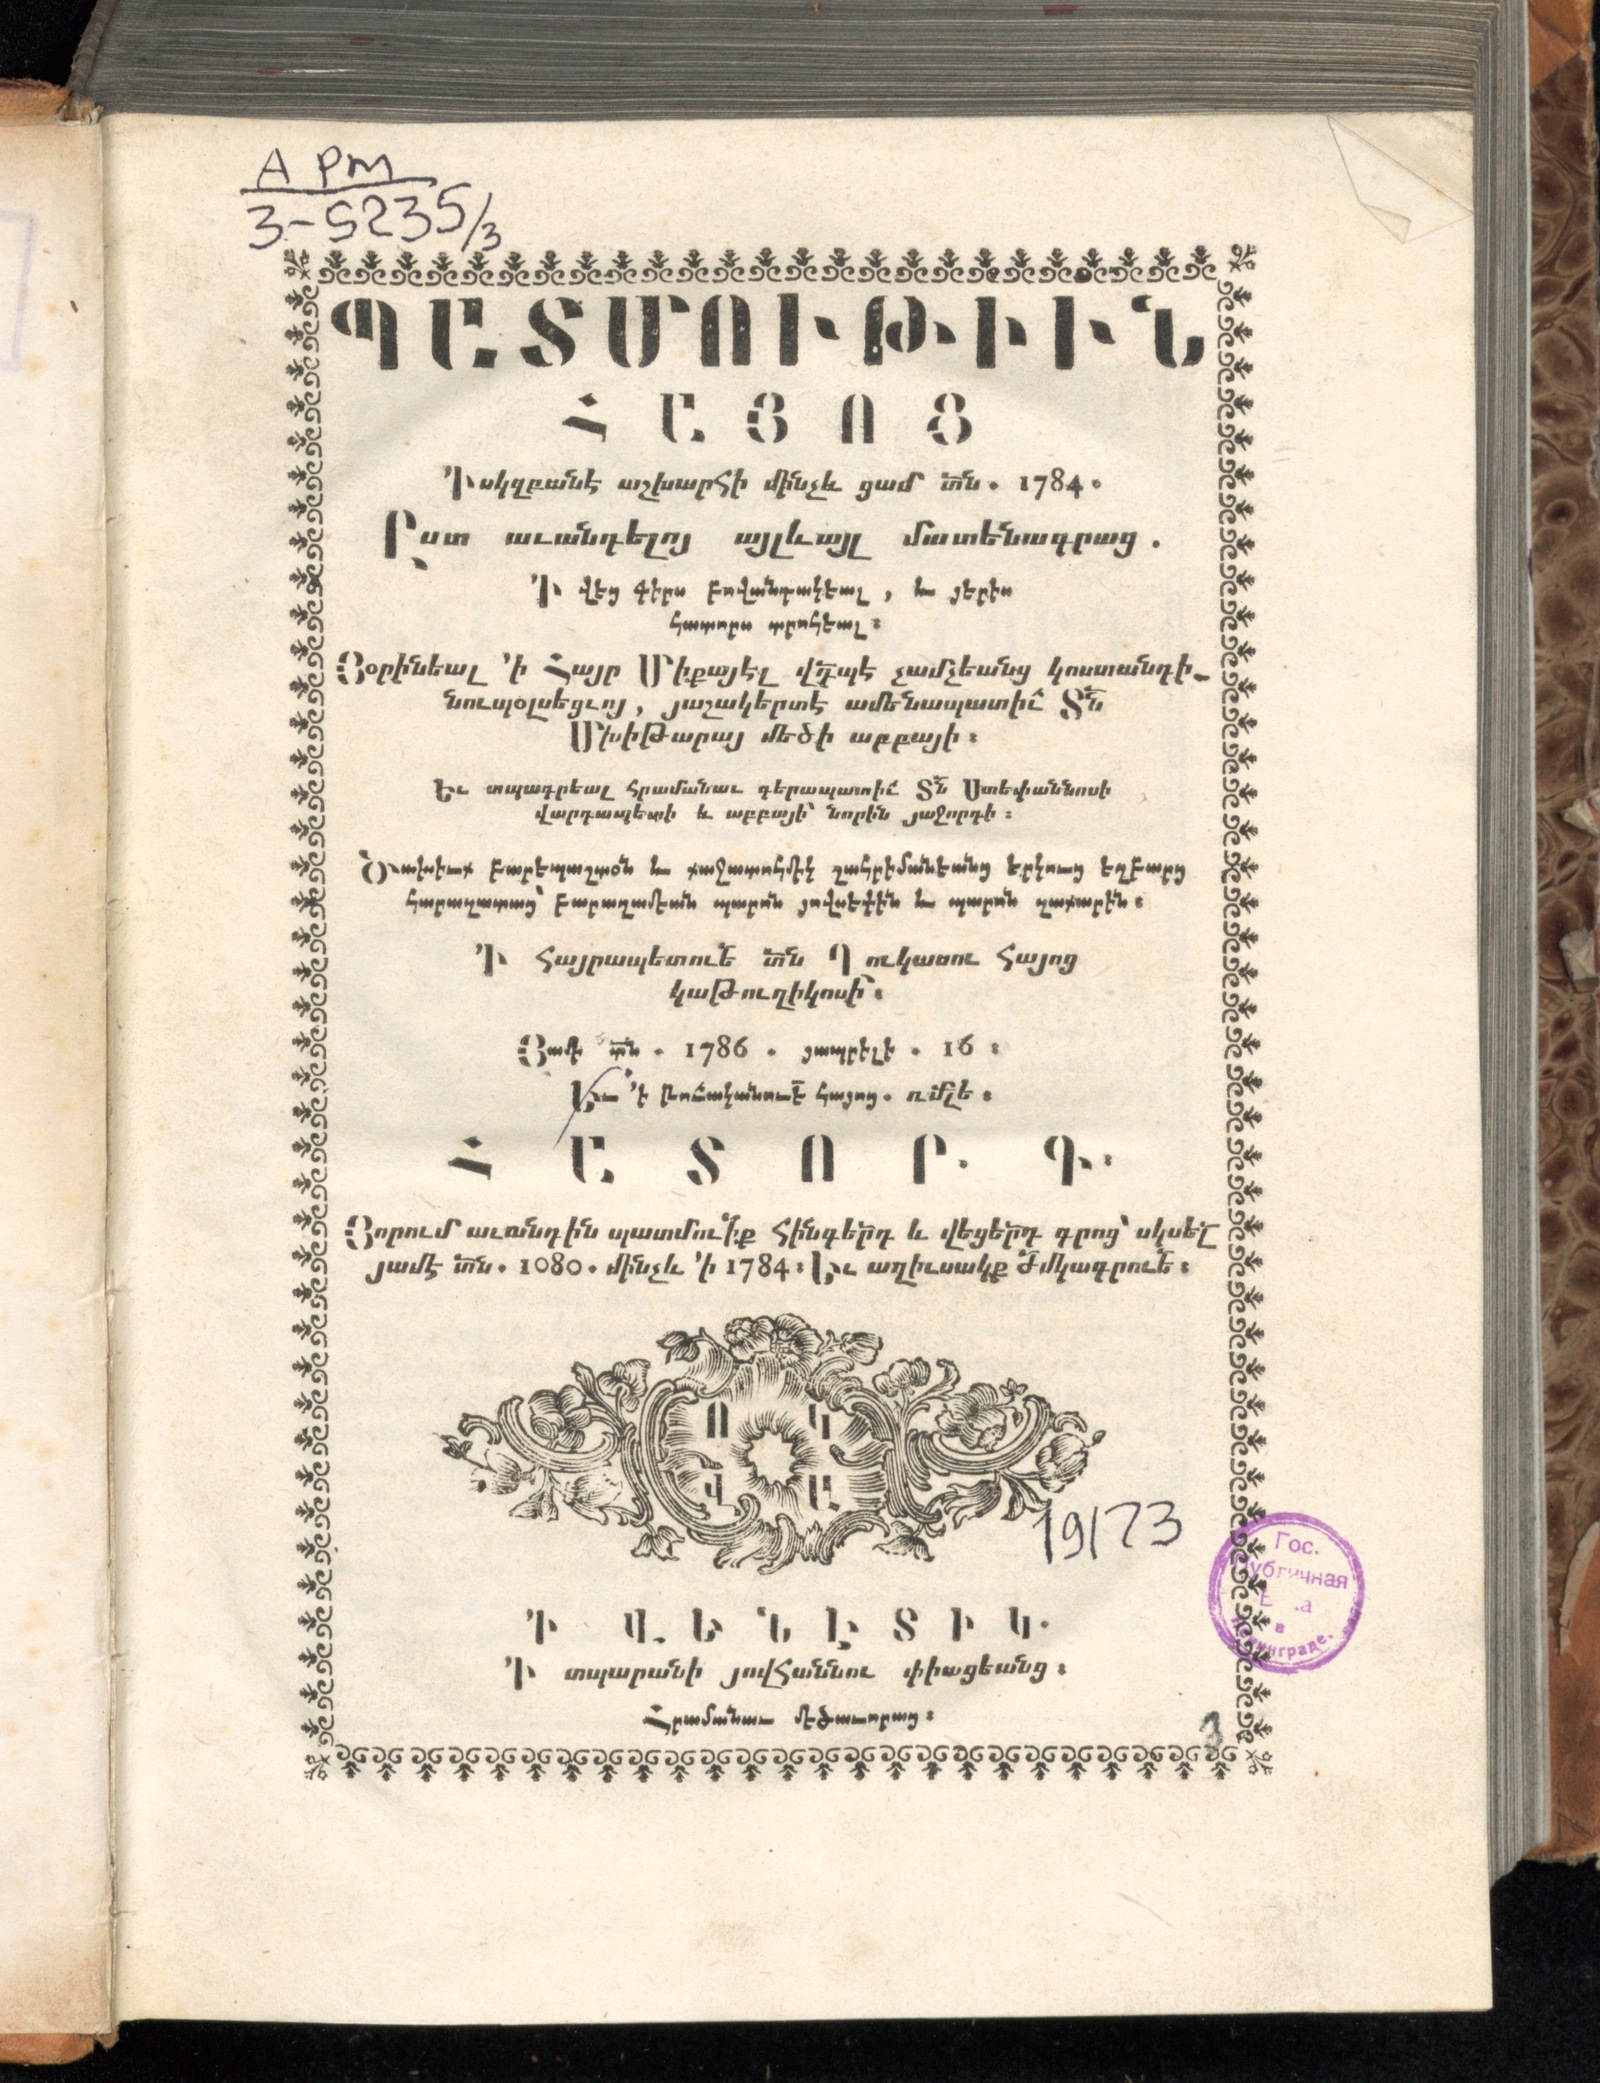 АРМ
3-5235/3
ՊԱՏՄՈՒԹԻԻՆ
ՀԱՅՈՑ
Ի սկզբանէ աշխարհի մինչև ցամ տն. 1784.
Ըստ աւանդելոյ այլևայլ մատենագրաց.
Ի վեց գիրս բովանդակեալ, և յերիս
հատորս տրոհեալ։
Յօրինեալ ՚ի Հայր Միքայէլ վրդպէ չամչեանց կոստանդի_
նուպօլսեցւոյ, յաշակերտէ ամենապատիւ Տն
Մխիթարայ մեծի աբբայի։
Եւ տպագրեալ հրամանաւ գերապատիւ Տն Ստեփաննոսի
վարդապետի և աբբայի՝ նորին յաջորդի։
Ծախիւք բարեպաշտօն և քաջատոհմիկ շահրիմանեանց երկուց եղբարց
հարազատաց՝ բարաղամեան պարոն յովսեփին և պարոն զաքարին։
Ի Հայրապետուե տն Ղուկասու Հայոց
կաթուղիկոսի։
Յամի տն. 1786. յապրիլի. 16։
Եւ ՚ի թուականուե հայոց. ռմլե։
ՀԱՏՈՐ. Գ.
Յորում աւանդին պատմուիք հինգերդ և վեցերդ գրոց՝ սկսել
յամէ տն. 1080. մինչև ՚ի 1784։ Եւ աղիւսակք ժմկագրուե։
Ո Կ
Վ Ա
19173
Гос.
Публичная
Б-ка
в
Ленинграде.
Ի ՎԵՆԷՏԻԿ.
Ի տպարանի յովհաննու փիացեանց։
Հրամանաւ մեծաւորաց։
3